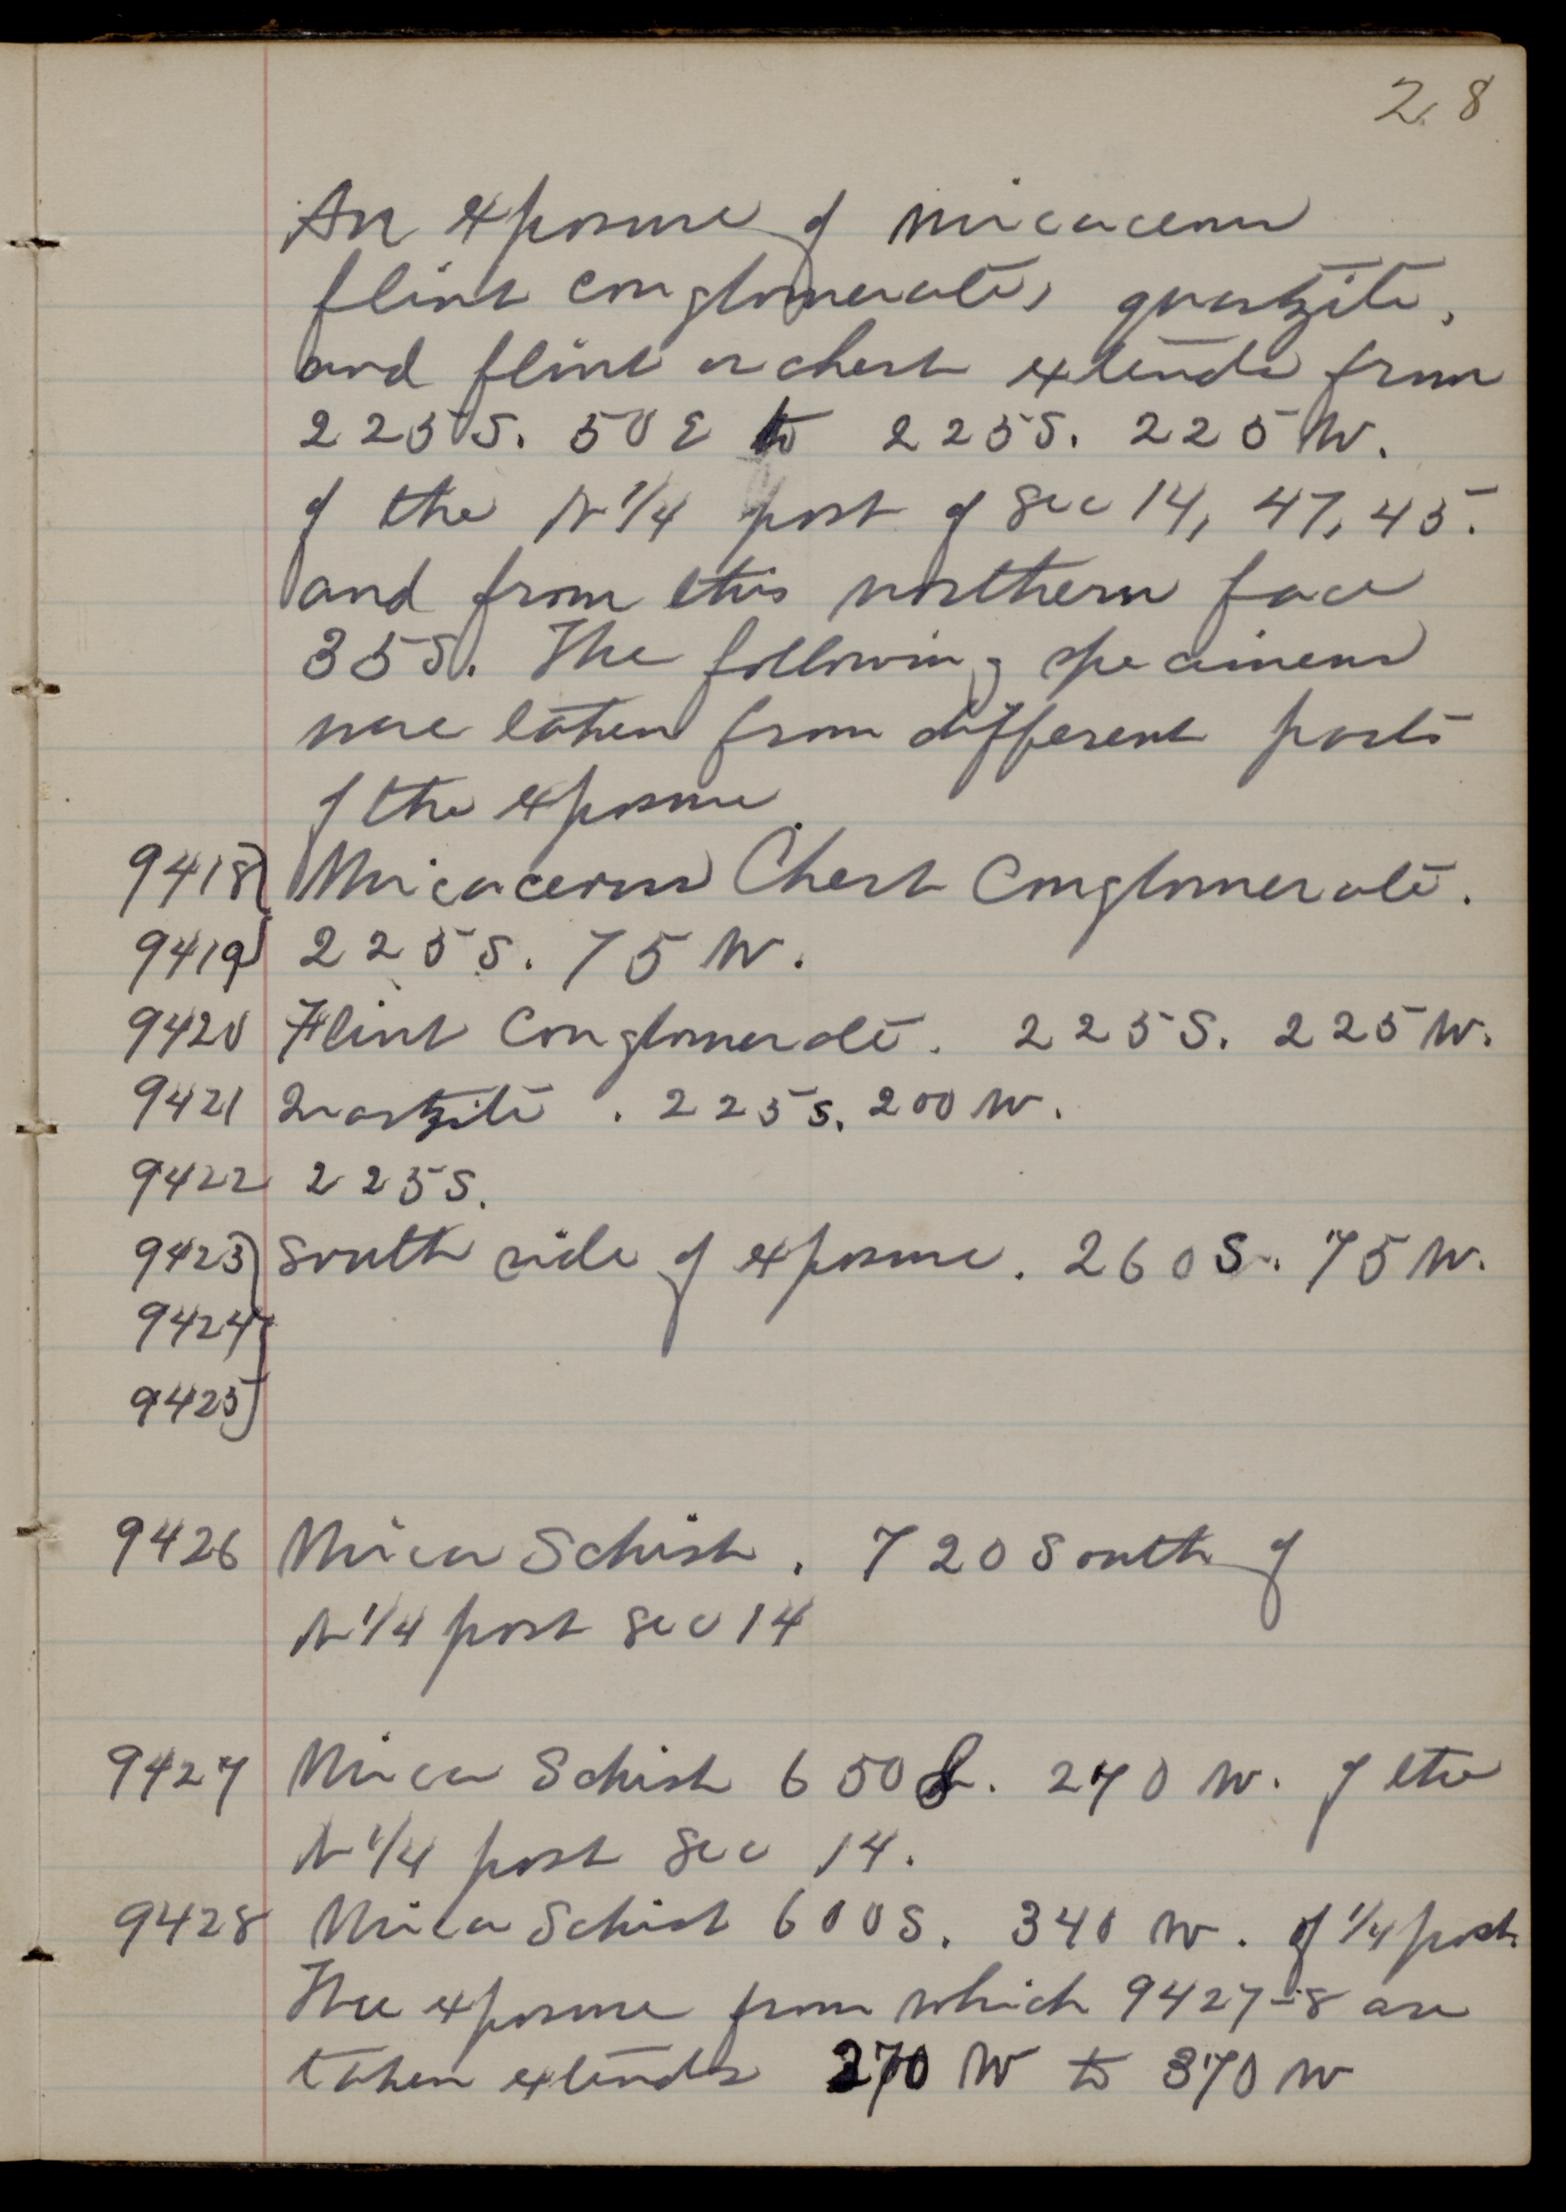 28
An exposure of micaceous
flint conglomerate, quartzite,
and flint or chert extends from
225 S. 50 E to 225 S. 225 W.
of the N 1/4 post of Sec 14, 47, 45.
and from this northern face
35 S. The following specimens
were taken from different parts
of the exposure.
9418 Micaceous Chert Conglomerate.
9419 225 S. 75 W.
9420 Flint Conglomerate. 225 S. 225 W.
9421 Quartzite. 225 S. 200 W.
9422 225 S.
9423 South side of exposure. 260 S. 75 W.
9424
9425
9426 Mica Schist. 720 South of
N 1/4 post Sec 14
9427 Mica Schist 650 S. 270 W. of the
N 1/4 post Sec 14.
9428 Mica Schist 600 S. 340 W. of 1/4 post.
The exposure from which 9427-8 are
taken extends 270 W to 370 W